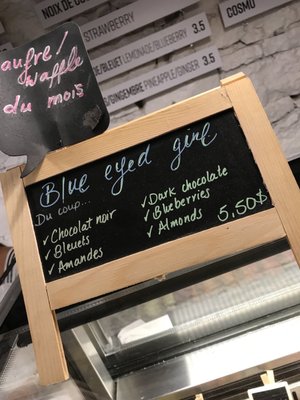 NOIX DE COCO
STRAWBERRY
/BLEUET LEMONADE/BLUEBERRY 3.5
/GINGEMBRE PINEAPPLE/GINGER 3.5
3.5
COSMO
gaufre/
waffle
du mois
Blue eyed girl
Du coup...
✓ Chocolat noir
✓ Bleuets
✓ Amandes
✓ Dark chocolate
✓ Blueberries
✓ Almonds
5,50$